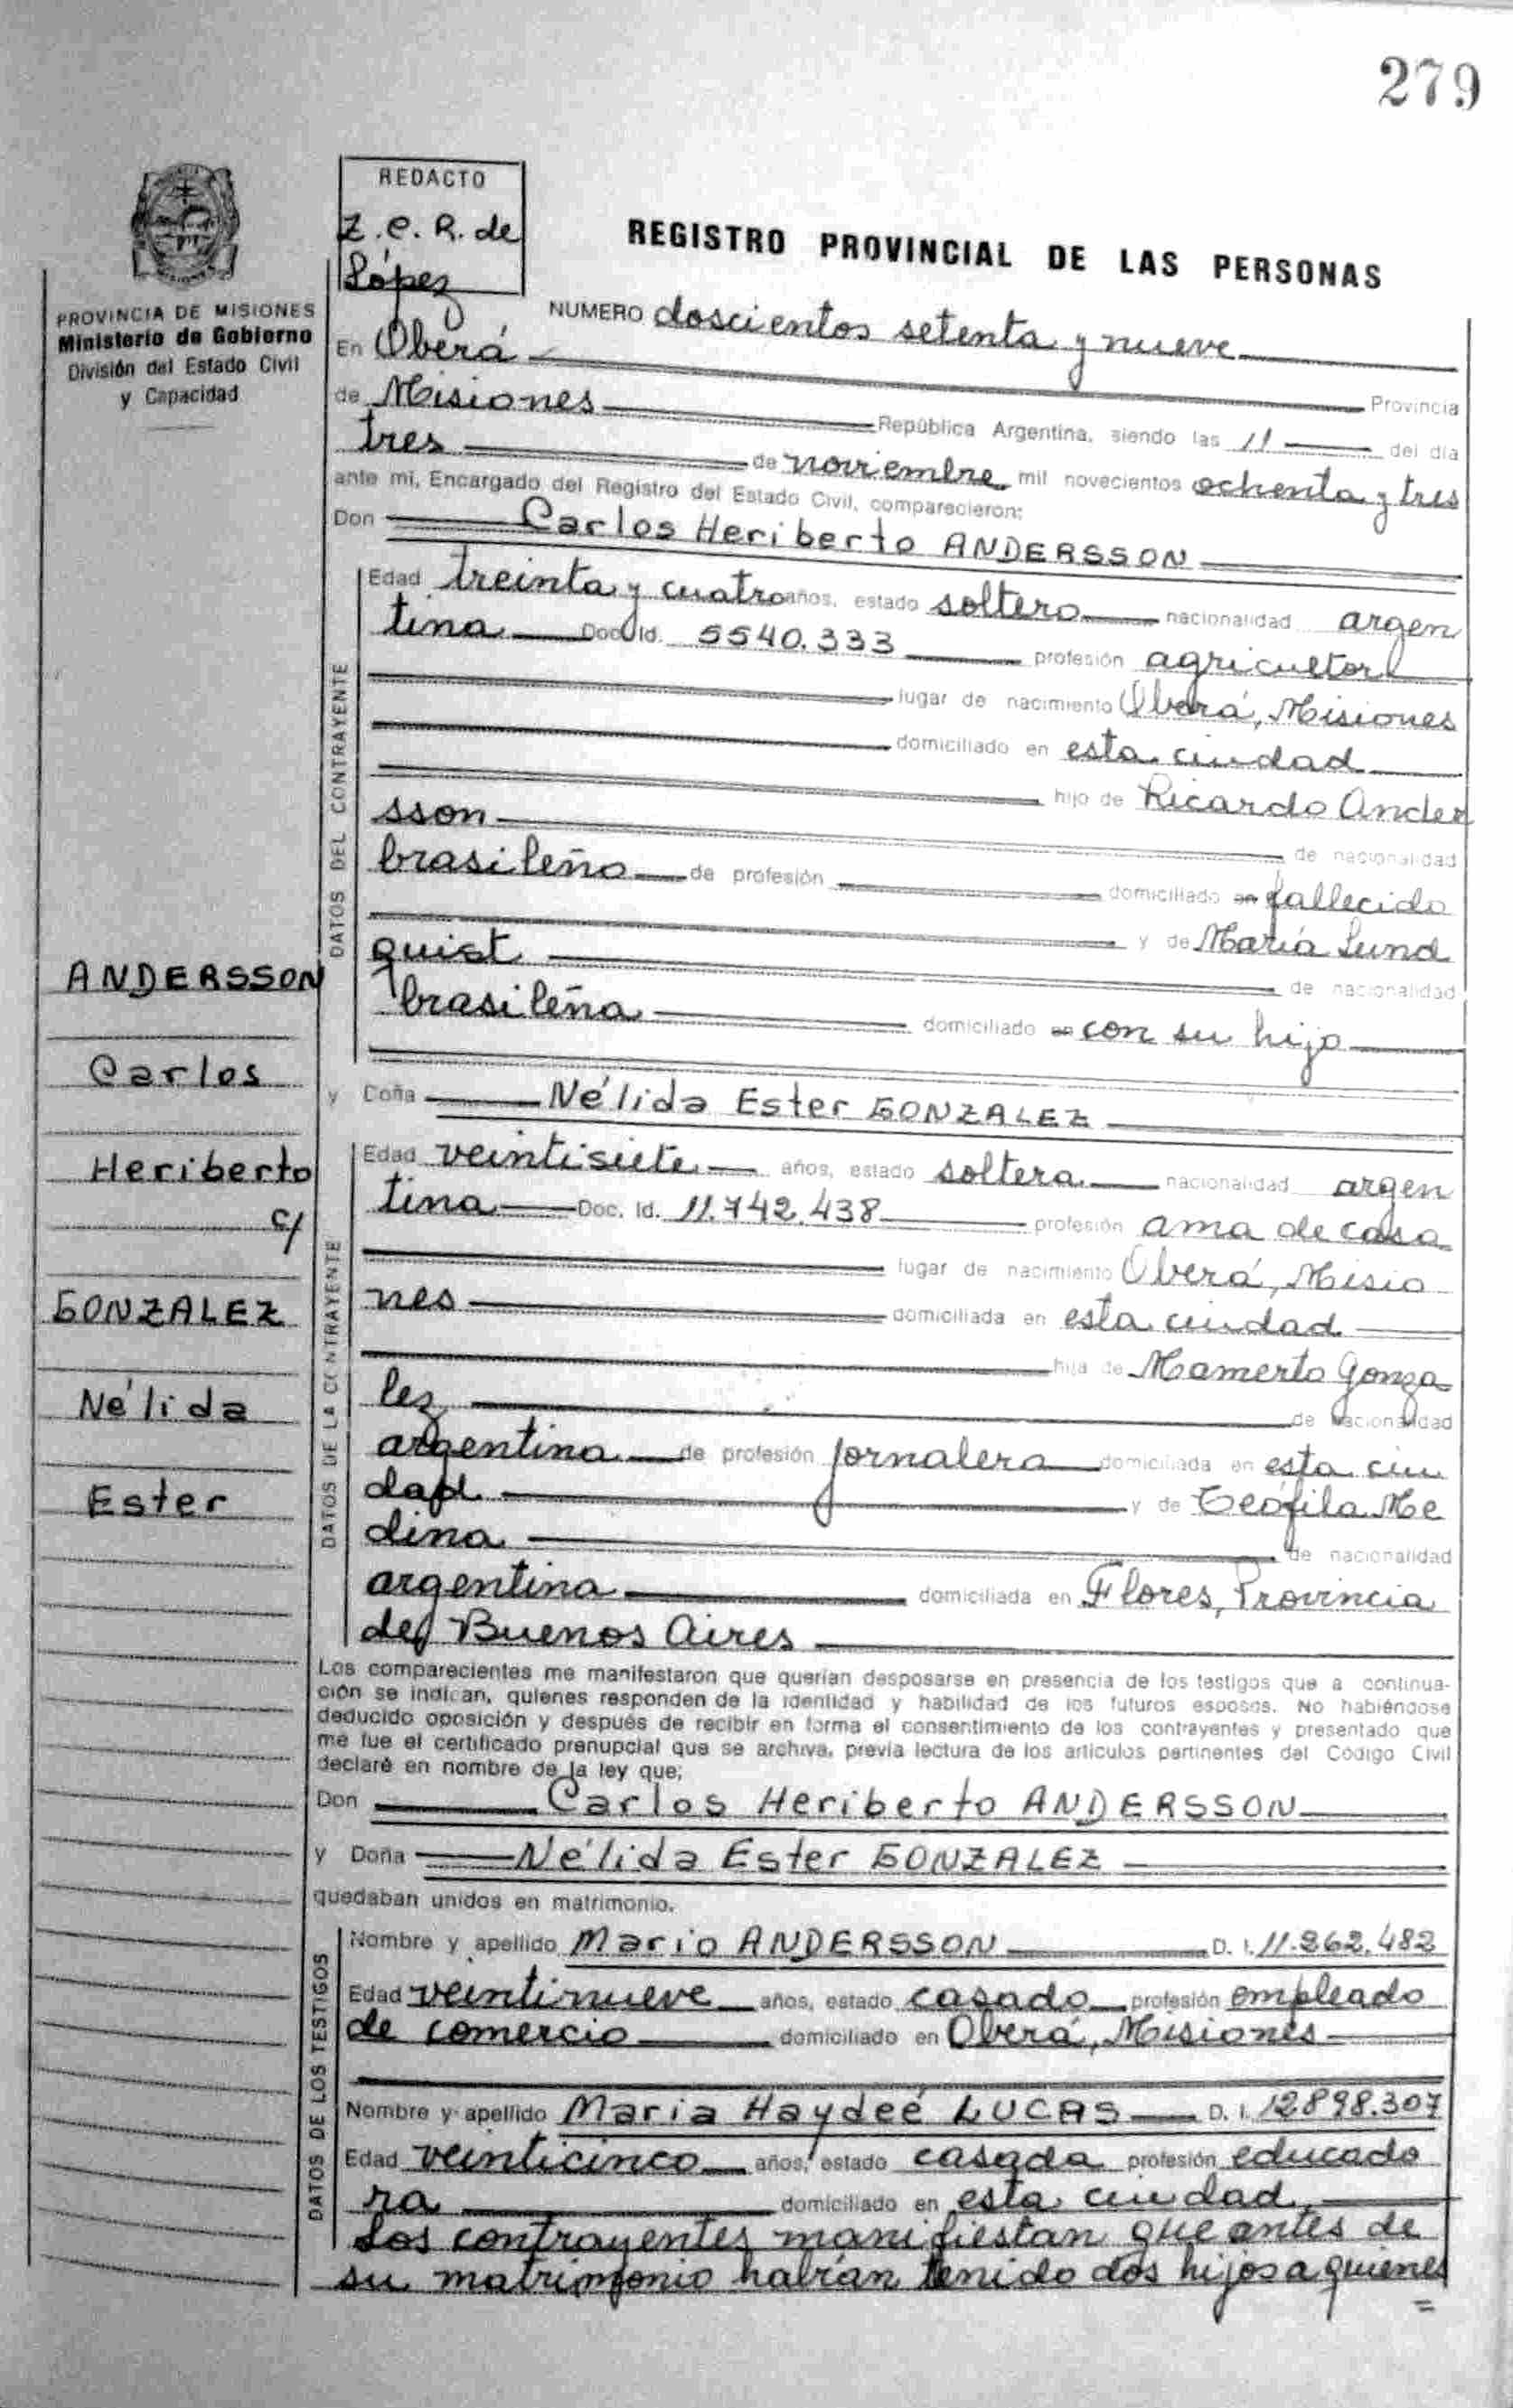 279
REDACTO
Z.C.R. de
López
REGISTRO PROVINCIAL DE LAS PERSONAS
PROVINCIA DE MISIONES
Ministerio de Gobierno
División del Estado Civil
y Capacidad
NUMERO doscientos setenta y nueve
En Oberá Provincia
de Misiones República Argentina, siendo las 11 del día
tres de noviembre mil novecientos ochenta y tres
ante mi, Encargado del Registro del Estado Civil, comparecieron:
Don Carlos Heriberto ANDERSSON
DATOS DEL CONTRAYENTE
Edad treinta y cuatro años, estado soltero nacionalidad argen
tina Doc. Id. 5540.333 profesión agricultor
lugar de nacimiento Oberá, Misiones
domiciliado en esta ciudad
hijo de Ricardo Ander
sson de nacionalidad
brasileño de profesión domiciliado en fallecido
y de María Lund
quist de nacionalidad
brasileña domiciliado en con su hijo
y Doña Nélida Ester GONZALEZ
DATOS DE LA CONTRAYENTE
Edad veintisiete años, estado soltera nacionalidad argen
tina Doc. Id. 11.742.438 profesión ama de casa
lugar de nacimiento Oberá, Misio
nes domiciliada en esta ciudad
hija de Mamerto Gonza
lez de nacionalidad
argentina de profesión jornalera domiciliada en esta ciu
dad y de Teófila Me
dina de nacionalidad
argentina domiciliada en Flores, Provincia
de Buenos Aires
ANDERSSON
Carlos
Heriberto
c/
GONZALEZ
Nélida
Ester
Los comparecientes me manifestaron que querían desposarse en presencia de los testigos que a continua-
ción se indican, quienes responden de la identidad y habilidad de los futuros esposos. No habiéndose
deducido oposición y después de recibir en forma el consentimiento de los contrayentes y presentado que
me fue el certificado prenupcial que se archiva, previa lectura de los artículos pertinentes del Código Civil
declaré en nombre de la ley que;
Don Carlos Heriberto ANDERSSON
y Doña Nélida Ester GONZALEZ
quedaban unidos en matrimonio.
DATOS DE LOS TESTIGOS
Nombre y apellido Mario ANDERSSON D. I. 11.262.482
Edad veintinueve años, estado casado profesión empleado
de comercio domiciliado en Oberá, Misiones
Nombre y apellido Maria Haydeé LUCAS D. I. 12898.307
Edad veinticinco años, estado casada profesión educado
ra domiciliado en esta ciudad,
Los contrayentes manifiestan que antes de
su matrimonio habían tenido dos hijos a quienes
=